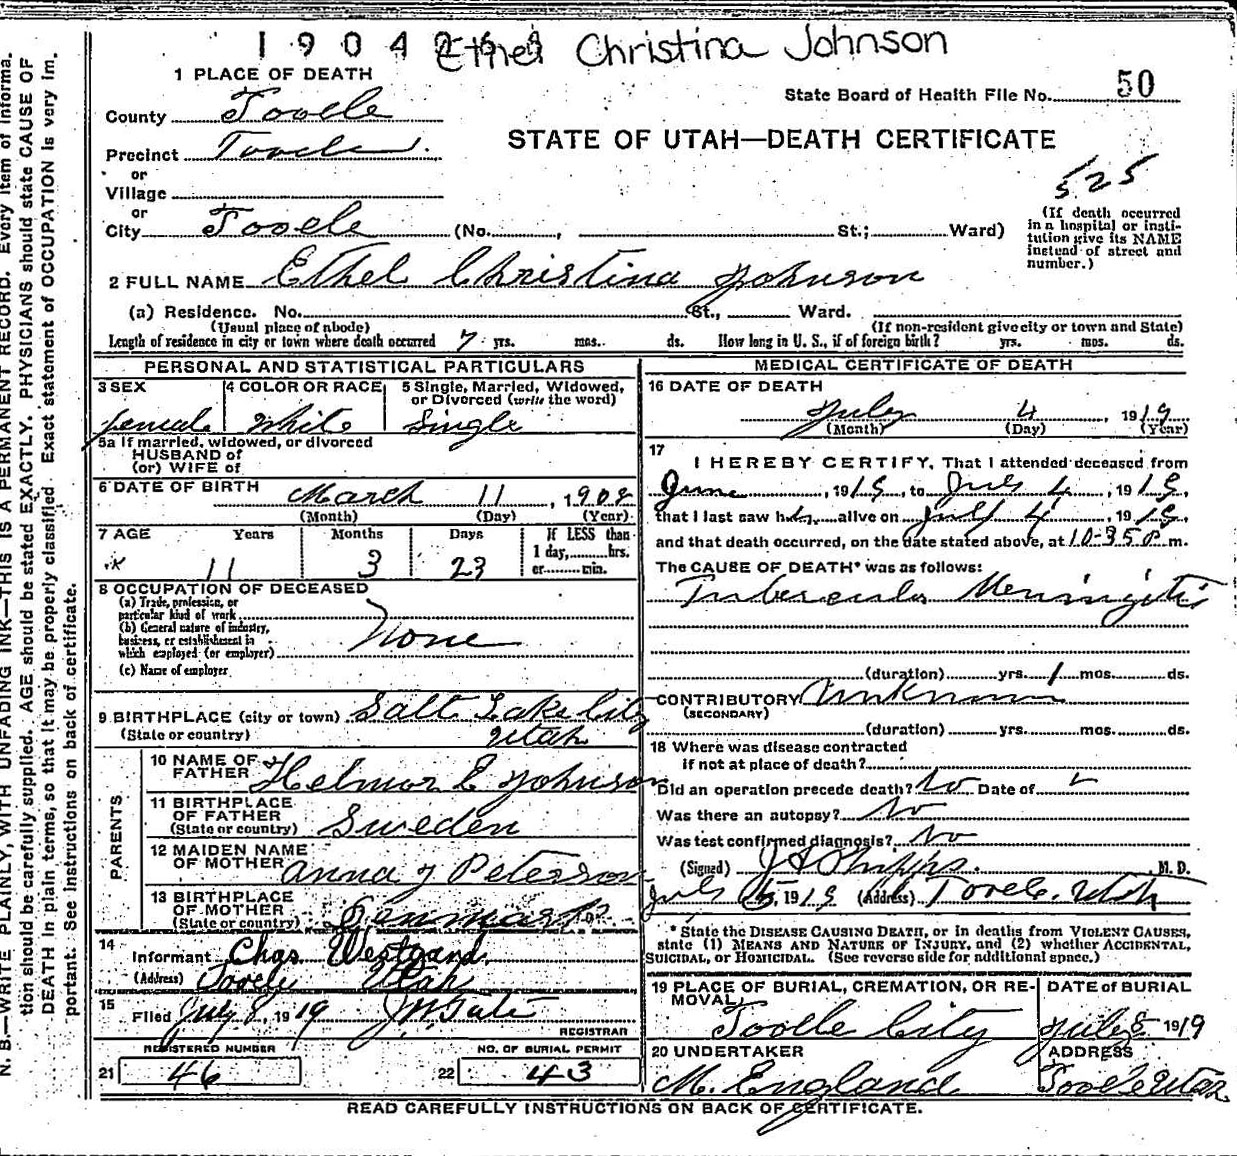 1 9 0 4 2 6 1
Ethel Christina Johnson
1 PLACE OF DEATH
State Board of Health File No. 50
County Tooele
STATE OF UTAH—DEATH CERTIFICATE
Precinct Tooele
or
Village
525
or
City Tooele (No. , St.; Ward)
(If death occurred in a hospital or institution give its NAME instead of street and number.)
2 FULL NAME Ethel Christina Johnson
(a) Residence. No. St., Ward.
(Usual place of abode) (If non-resident give city or town and State)
Length of residence in city or town where death occurred 7 yrs. mos. ds. How long in U. S., if of foreign birth? yrs. mos. ds.
PERSONAL AND STATISTICAL PARTICULARS
3 SEX 4 COLOR OR RACE 5 Single, Married, Widowed, or Divorced (write the word)
female white Single
5a If married, widowed, or divorced
HUSBAND of
(or) WIFE of
6 DATE OF BIRTH March 11, 1908
(Month) (Day) (Year)
7 AGE Years Months Days If LESS than
1 day, hrs.
or min.
11 3 23
8 OCCUPATION OF DECEASED
(a) Trade, profession, or
particular kind of work
(b) General nature of industry,
business, or establishment in
which employed (or employer)
None
(c) Name of employer
9 BIRTHPLACE (city or town) Salt Lake City
(State or country) Utah
PARENTS
10 NAME OF FATHER Helmar E Johnson
11 BIRTHPLACE OF FATHER
(State or country) Sweden
12 MAIDEN NAME OF MOTHER Anna J Peterson
13 BIRTHPLACE OF MOTHER
(State or country) Denmark
14
Informant Chas. Westgard
(Address) Tooele Utah
15
Filed July 8, 1919 J.W. Tate
REGISTRAR
REGISTERED NUMBER
21 46
NO. OF BURIAL PERMIT
22 43
MEDICAL CERTIFICATE OF DEATH
16 DATE OF DEATH
July 4, 1919
(Month) (Day) (Year)
17
I HEREBY CERTIFY, That I attended deceased from
June, 1919, to July 4, 1919,
that I last saw her alive on July 4, 1919,
and that death occurred, on the date stated above, at 10-35 P m.
The CAUSE OF DEATH* was as follows:
Tubercular Meningitis
(duration) yrs. 1 mos. ds.
CONTRIBUTORY Unknown
(SECONDARY)
(duration) yrs. mos. ds.
18 Where was disease contracted
if not at place of death?
Did an operation precede death? No Date of
Was there an autopsy? No
Was test confirmed diagnosis? No
(Signed) J A Phipps. M. D.
July 5, 1919 (Address) Tooele, Utah
* State the DISEASE CAUSING DEATH, or in deaths from VIOLENT CAUSES,
state (1) MEANS AND NATURE OF INJURY, and (2) whether ACCIDENTAL,
SUICIDAL, or HOMICIDAL. (See reverse side for additional space.)
19 PLACE OF BURIAL, CREMATION, OR REMOVAL
Tooele City
DATE of BURIAL
July 5 1919
20 UNDERTAKER
M. England
ADDRESS
Tooele Utah
READ CAREFULLY INSTRUCTIONS ON BACK OF CERTIFICATE.
N. B.—WRITE PLAINLY, WITH UNFADING INK—THIS IS A PERMANENT RECORD. Every item of informa-
tion should be carefully supplied. AGE should be stated EXACTLY. PHYSICIANS should state CAUSE OF
DEATH in plain terms, so that it may be properly classified. Exact statement of OCCUPATION is very im-
portant. See instructions on back of certificate.